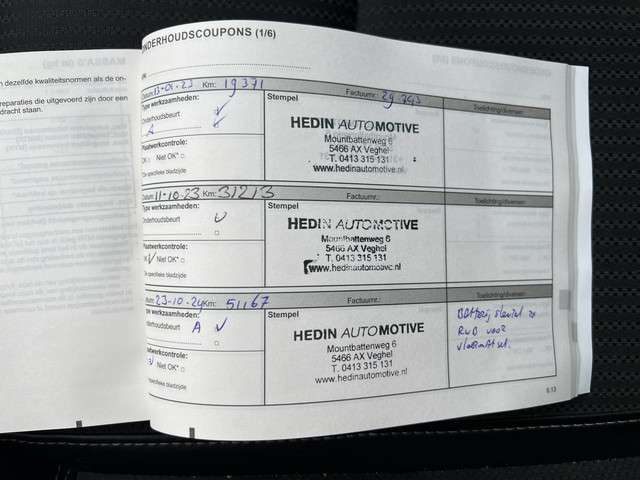 n dezelfde kwaliteitsnormen als de on-
reparaties die uitgevoerd zijn door een
dracht staan.
ONDERHOUDSCOUPONS (1/6)
Datum: 13-01-23 Km: 19371
Factuurnr.: 29 743
Toelichting/diversen:
Type werkzaamheden:
Stempel
Onderhoudsbeurt
A
HEDIN AUTOMOTIVE
Mountbattenweg 6
5466 AX Veghel
T. 0413 315 131
www.hedinautomotive.nl
Plaatwerkcontrole:
OK Niet OK*
*Zie specifieke bladzijde
Datum: 11-10-23 Km: 31213
Factuurnr.:
Toelichting/diversen:
Type werkzaamheden:
Stempel
Onderhoudsbeurt
HEDIN AUTOMOTIVE
Mountbattenweg 6
5466 AX Veghel
T. 0413 315 131
www.hedinautomotive.nl
Plaatwerkcontrole:
OK Niet OK*
*Zie specifieke bladzijde
tum: 23-10-24 Km: 51167
Factuurnr.:
Toelichting/diversen:
pe werkzaamheden:
Stempel
nderhoudsbeurt A
HEDIN AUTOMOTIVE
Mountbattenweg 6
5466 AX Veghel
T. 0413 315 131
www.hedinautomotive.nl
Batterij sleutel
voor
aatwerkcontrole:
Niet OK*
ie specifieke bladzijde
6.13